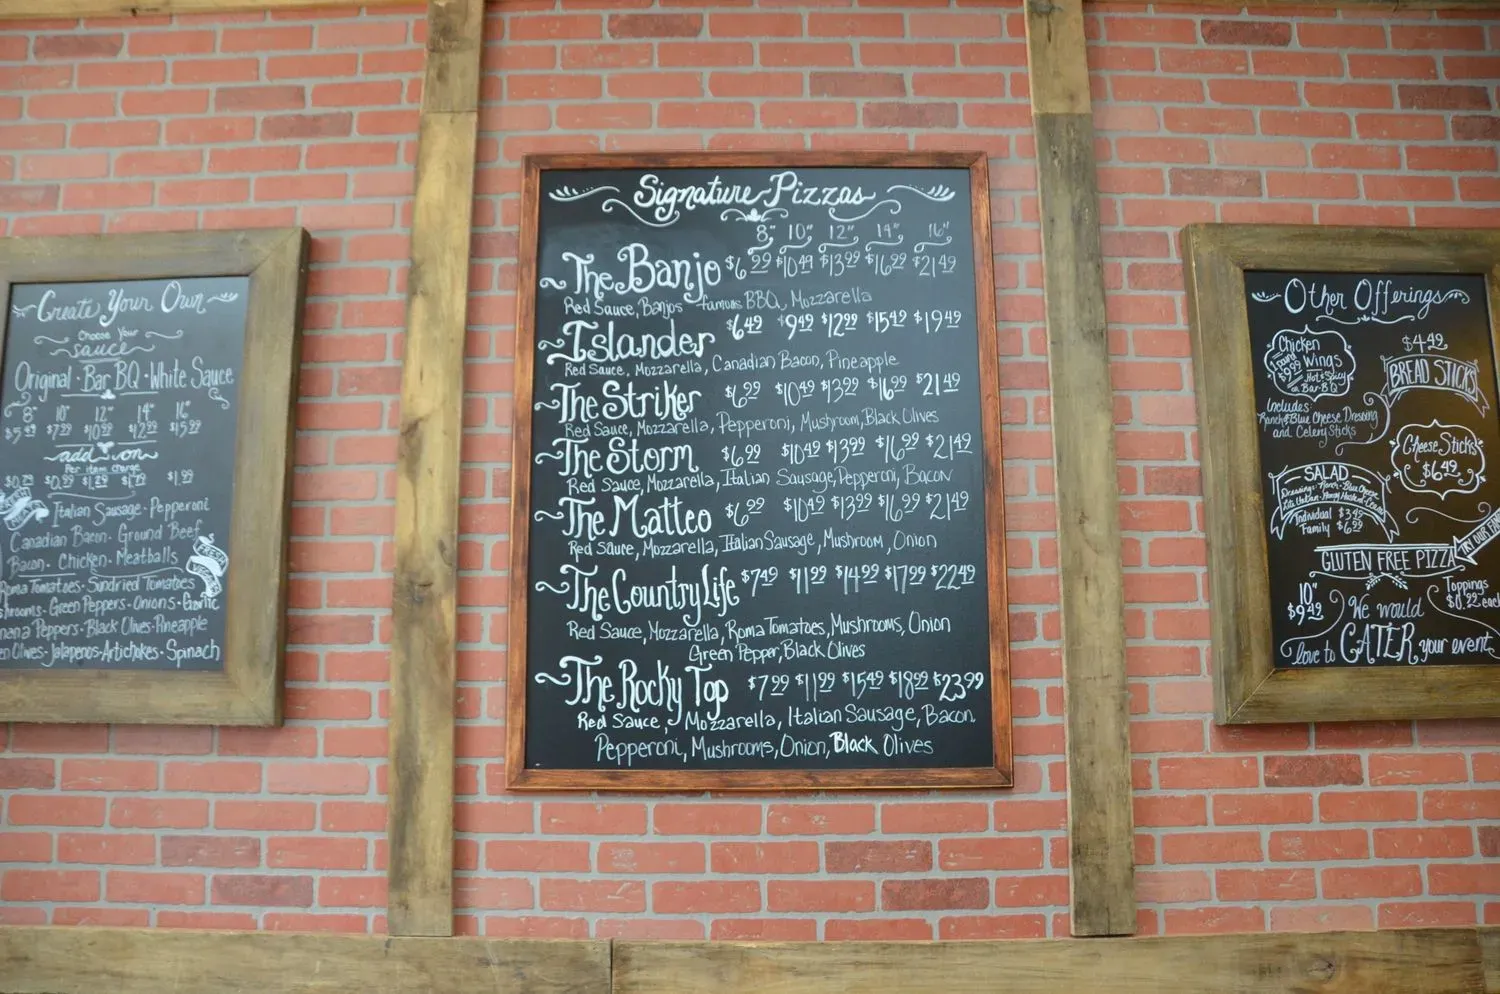 Create Your Own
Choose Your
sauce
Original · Bar BQ · White Sauce
8" 10" 12" 14" 16"
$5.49 $7.99 $10.99 $12.99 $15.99
add on
Per item charge
$0.79 $0.99 $1.29 $1.79 $1.99
Italian Sausage · Pepperoni
Canadian Bacon · Ground Beef
Bacon · Chicken · Meatballs
Roma Tomatoes · Sundried Tomatoes
Green Peppers · Onions · Garlic
Peppers · Black Olives · Pineapple
Olives · Jalapenos · Artichokes · Spinach
Signature Pizzas
8" 10" 12" 14" 16"
The Banjo $6.99 $10.49 $13.99 $16.99 $21.49
Red Sauce, Banjos famous BBQ, Mozzarella
Islander $6.49 $9.49 $12.99 $15.49 $19.49
Red Sauce, Mozzarella, Canadian Bacon, Pineapple
The Striker $6.99 $10.49 $13.99 $16.99 $21.49
Red Sauce, Mozzarella, Pepperoni, Mushroom, Black Olives
The Storm $6.99 $10.49 $13.99 $16.99 $21.49
Red Sauce, Mozzarella, Italian Sausage, Pepperoni, Bacon
The Matteo $6.99 $10.49 $13.99 $16.99 $21.49
Red Sauce, Mozzarella, Italian Sausage, Mushroom, Onion
The Country Life $7.49 $11.99 $14.99 $17.99 $22.49
Red Sauce, Mozzarella, Roma Tomatoes, Mushrooms, Onion
Green Pepper, Black Olives
The Rocky Top $7.99 $11.99 $15.49 $18.99 $23.99
Red Sauce, Mozzarella, Italian Sausage, Bacon
Pepperoni, Mushrooms, Onion, Black Olives
Other Offerings
Chicken
Wings
$9.99
Hot & Spicy
or Bar-BQ
Includes:
Ranch & Blue Cheese Dressing
and Celery Sticks
$4.49
BREAD STICKS
Cheese Sticks
$6.49
SALAD
Individual $3.45
Family $6.99
GLUTEN FREE PIZZA
TRY OUR
10"
$9.49
Toppings
each
We would
love to CATER your event